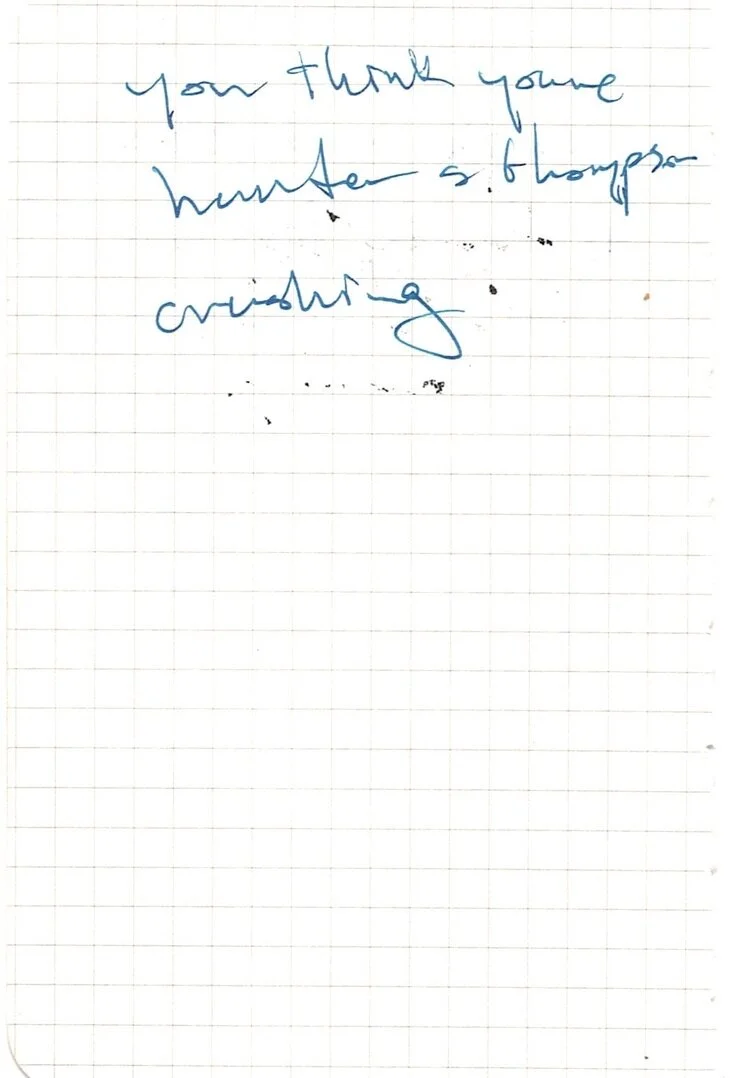 you think youre
hunter s. thompson
crushing